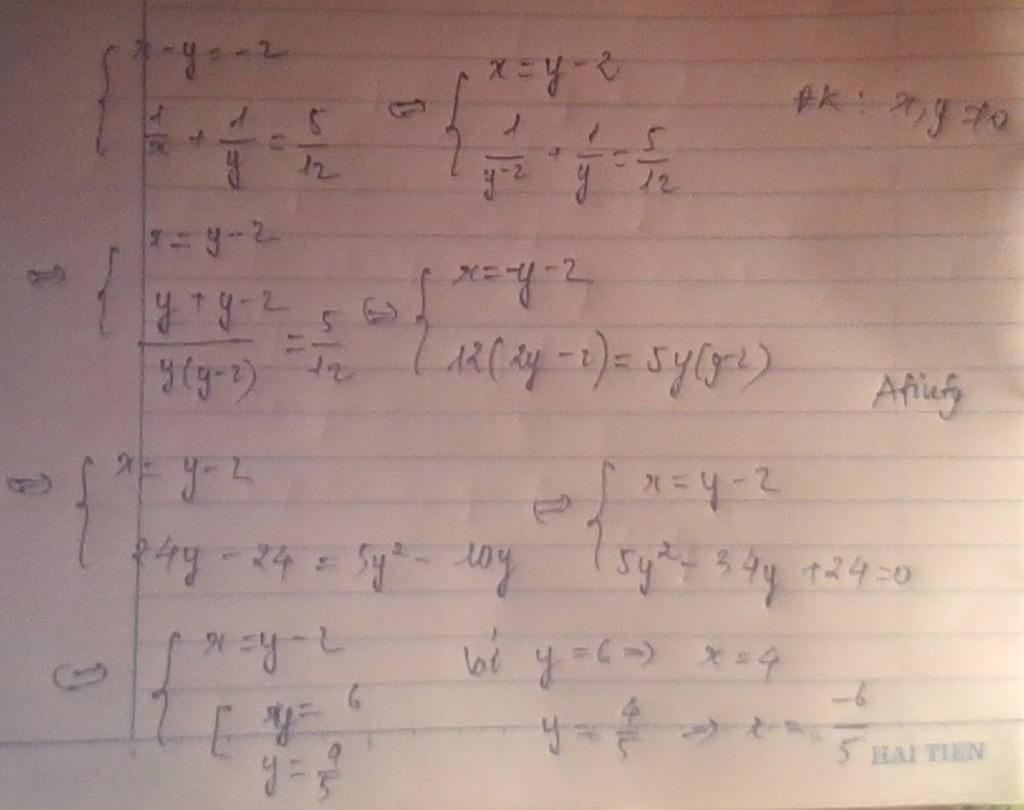 { x - y = -2
1/x + 1/y = 5/12 ⇔ { x = y - 2
1/(y-2) + 1/y = 5/12 ĐK: x, y ≠ 0
⇔ { x = y - 2
(y + y - 2)/(y(y-2)) = 5/12 ⇔ { x = y - 2
12(2y - 2) = 5y(y-2)
⇔ { x = y - 2
24y - 24 = 5y² - 10y ⇔ { x = y - 2
5y² - 34y + 24 = 0
⇔ { x = y - 2
[ y = 6
y = 4/5
y = 6 ⇒ x = 4
y = 4/5 ⇒ x = -6/5
HAI TIEN